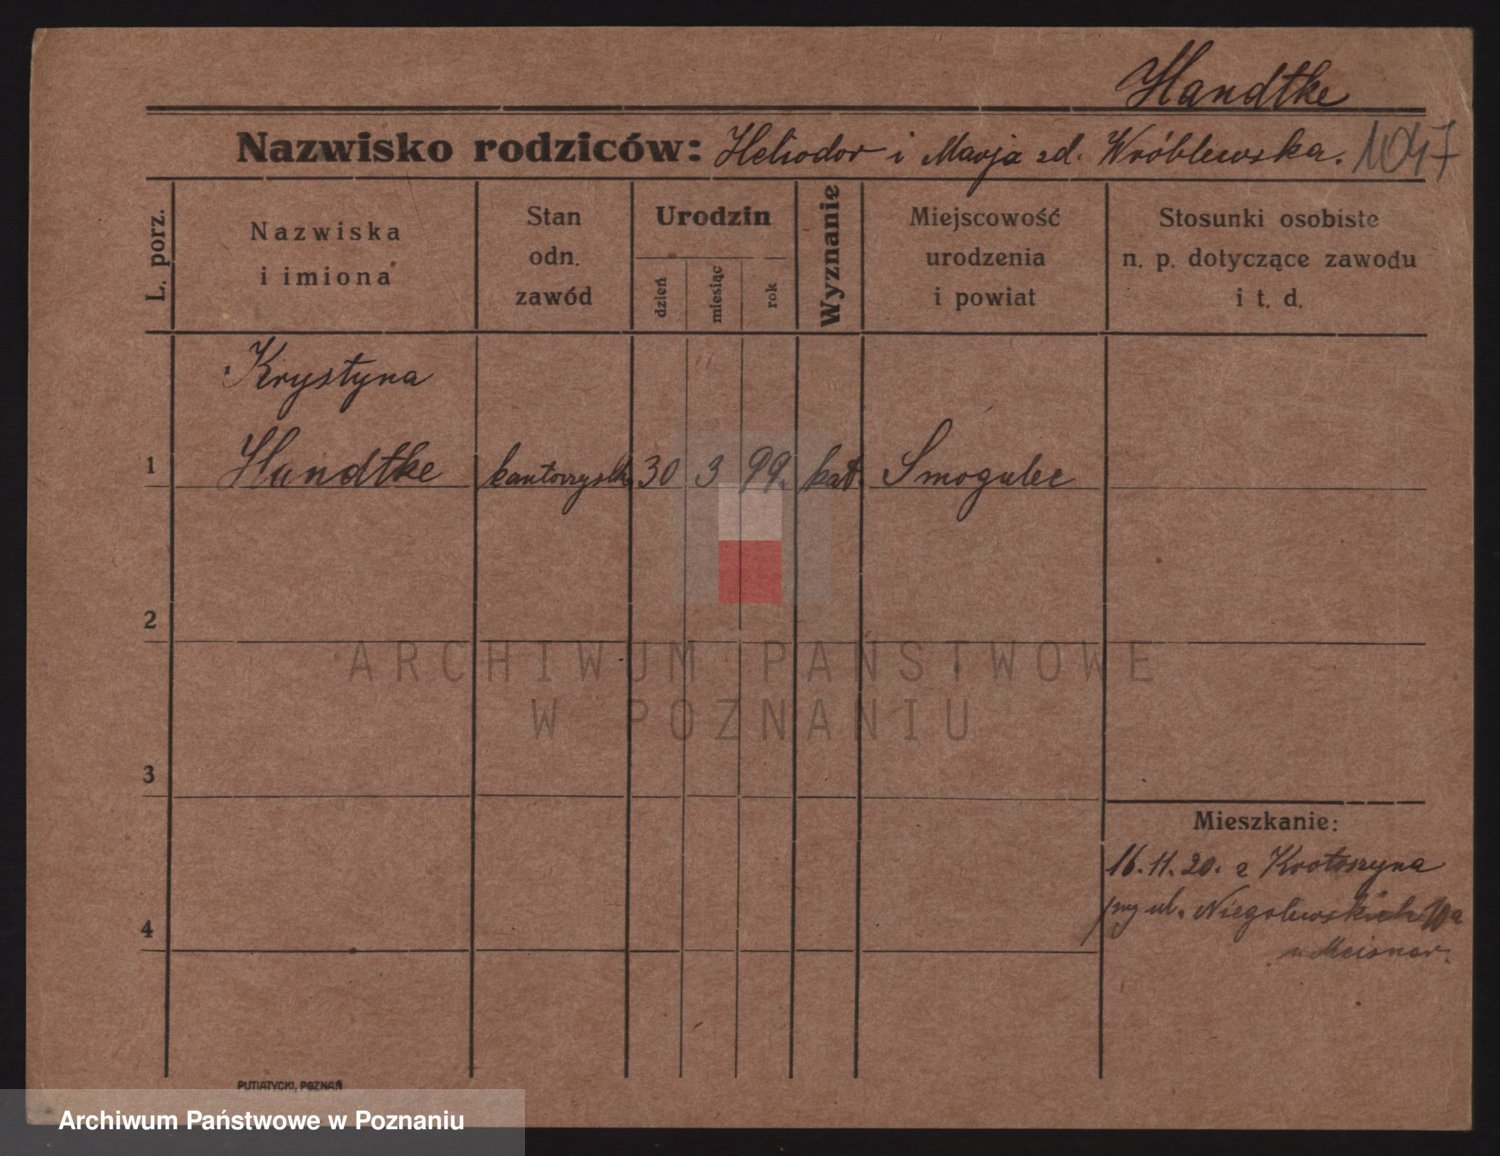 Handtke
Nazwisko rodziców: Heliodor i Marja zd. Wróblewska. 1047
L. porz.
Nazwiska
i imiona
Stan
odn.
zawód
Urodzin
dzień
miesiąc
rok
Wyznanie
Miejscowość
urodzenia
i powiat
Stosunki osobiste
n. p. dotyczące zawodu
i t. d.
Krystyna
1 Handtke kantorzystka 30 3 99. kat. Smogulec
2
ARCHIWUM PAŃSTWOWE
W POZNANIU
3
Mieszkanie:
16.11.20. z Krotoszyna
ul. Niegolewskich 10a
4
u Meisner.
PUTIATYCKI, POZNAŃ
Archiwum Państwowe w Poznaniu